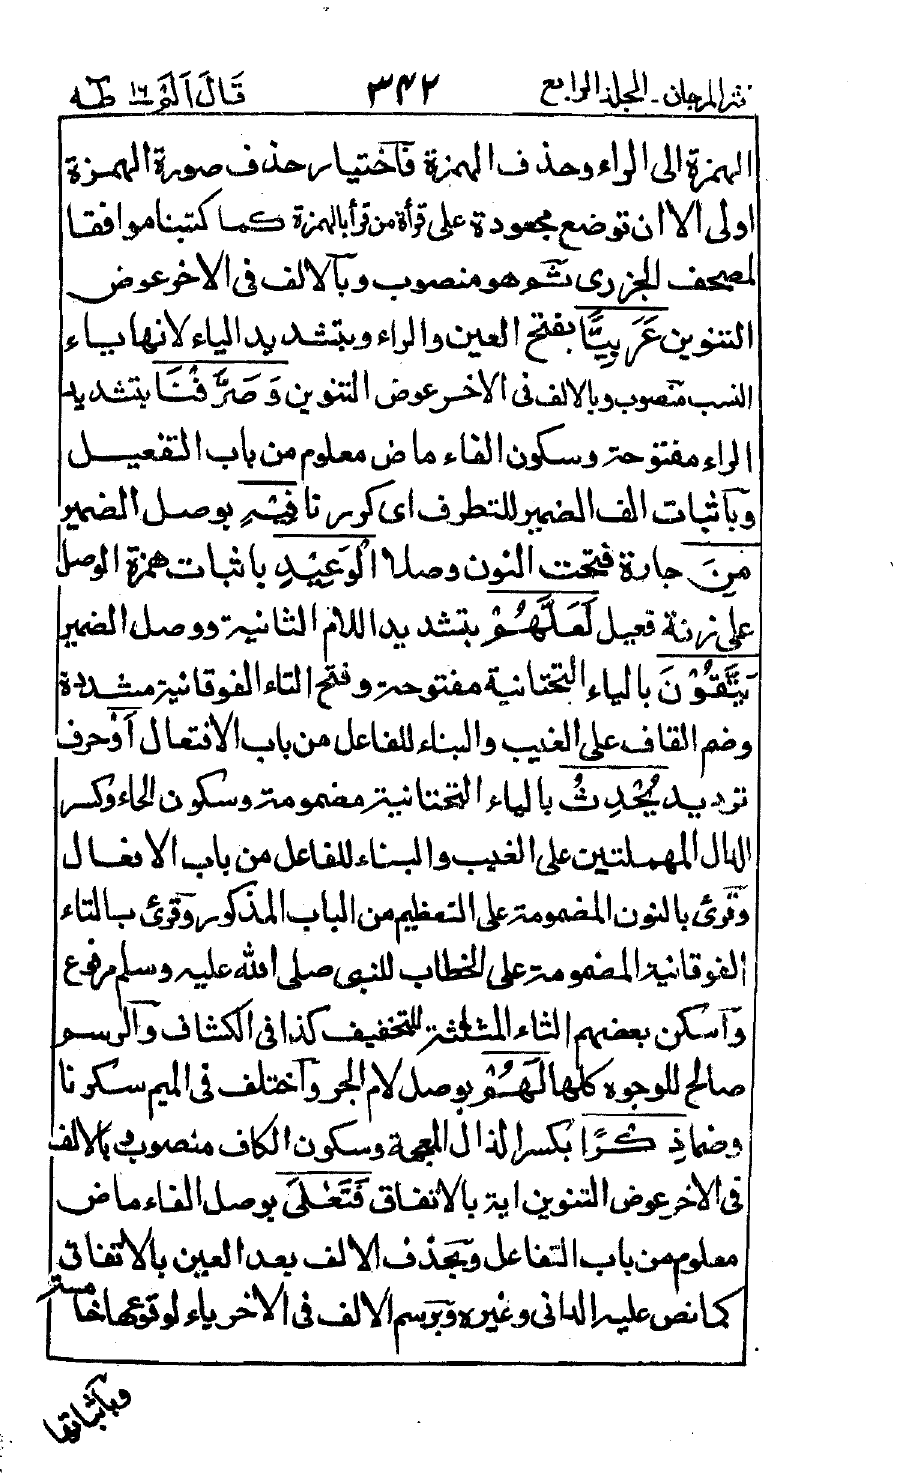 نثر المرجان - المجلد الرابع ٣٤٢ قَالَ اَلَمْ ١٦ طٰهٰ
الهمزة الى الراء وحذف الهمزة فاختيار حذف صورة الهمزة
اولى الا ان توضع مجعودة على قرأة من قرأ بالهمزة كما كتبنا موافقا
لمصحف الجزرى ثم هو منصوب وبالالف فى الاخر عوض
التنوين عَرَبِيًّا بفتح العين والراء وبتشديد الياء لانها ياء
النسب منصوب وبالالف فى الاخر عوض التنوين وَصَرَّفْنَا بتشديد
الراء مفتوحة وسكون الفاء ماض معلوم من باب التفعيل
وباثبات الف الضمير للتطرف اى كررنا فِيْهِ بوصل الضمير
مِنَ جارة فتحت النون وصلا الْوَعِيْدِ باثبات همزة الوصل
على زنة فعيل لَعَلَّهُمْ بتشديد اللام الثانية ووصل الضمير
يَتَّقُوْنَ بالياء التحتانية مفتوحة وفتح التاء الفوقانية مشددة
وضم القاف على الغيب والبناء للفاعل من باب الافتعال اَوْ حرف
ترديد يُحْدِثُ بالياء التحتانية مضمومة وسكون الحاء وكسر
الدال المهملتين على الغيب والبناء للفاعل من باب الافعال
وقرئ بالنون المضمومة على التعظيم من الباب المذكور وقرئ بالتاء
الفوقانية المضمومة على الخطاب للنبى صلى الله عليه وسلم مرفوع
واسكن بعضهم الثاء المثلثة للتخفيف كذا فى الكشاف والرسم
صالح للوجوه كلها لَهُمْ بوصل لام الجر واختلف فى الميم سكونا
وضما ذِكْرًا بكسر الذال المعجمة وسكون الكاف منصوب بالالف
فى الاخر عوض التنوين اية بالاتفاق فَتَعٰلَى بوصل الفاء ماض
معلوم من باب التفاعل وبحذف الالف بعد العين بالاتفاق
كما نص عليه الدانى وغيره وبرسم الالف فى الاخر ياء لوقوعها خامسة
وباثباتها